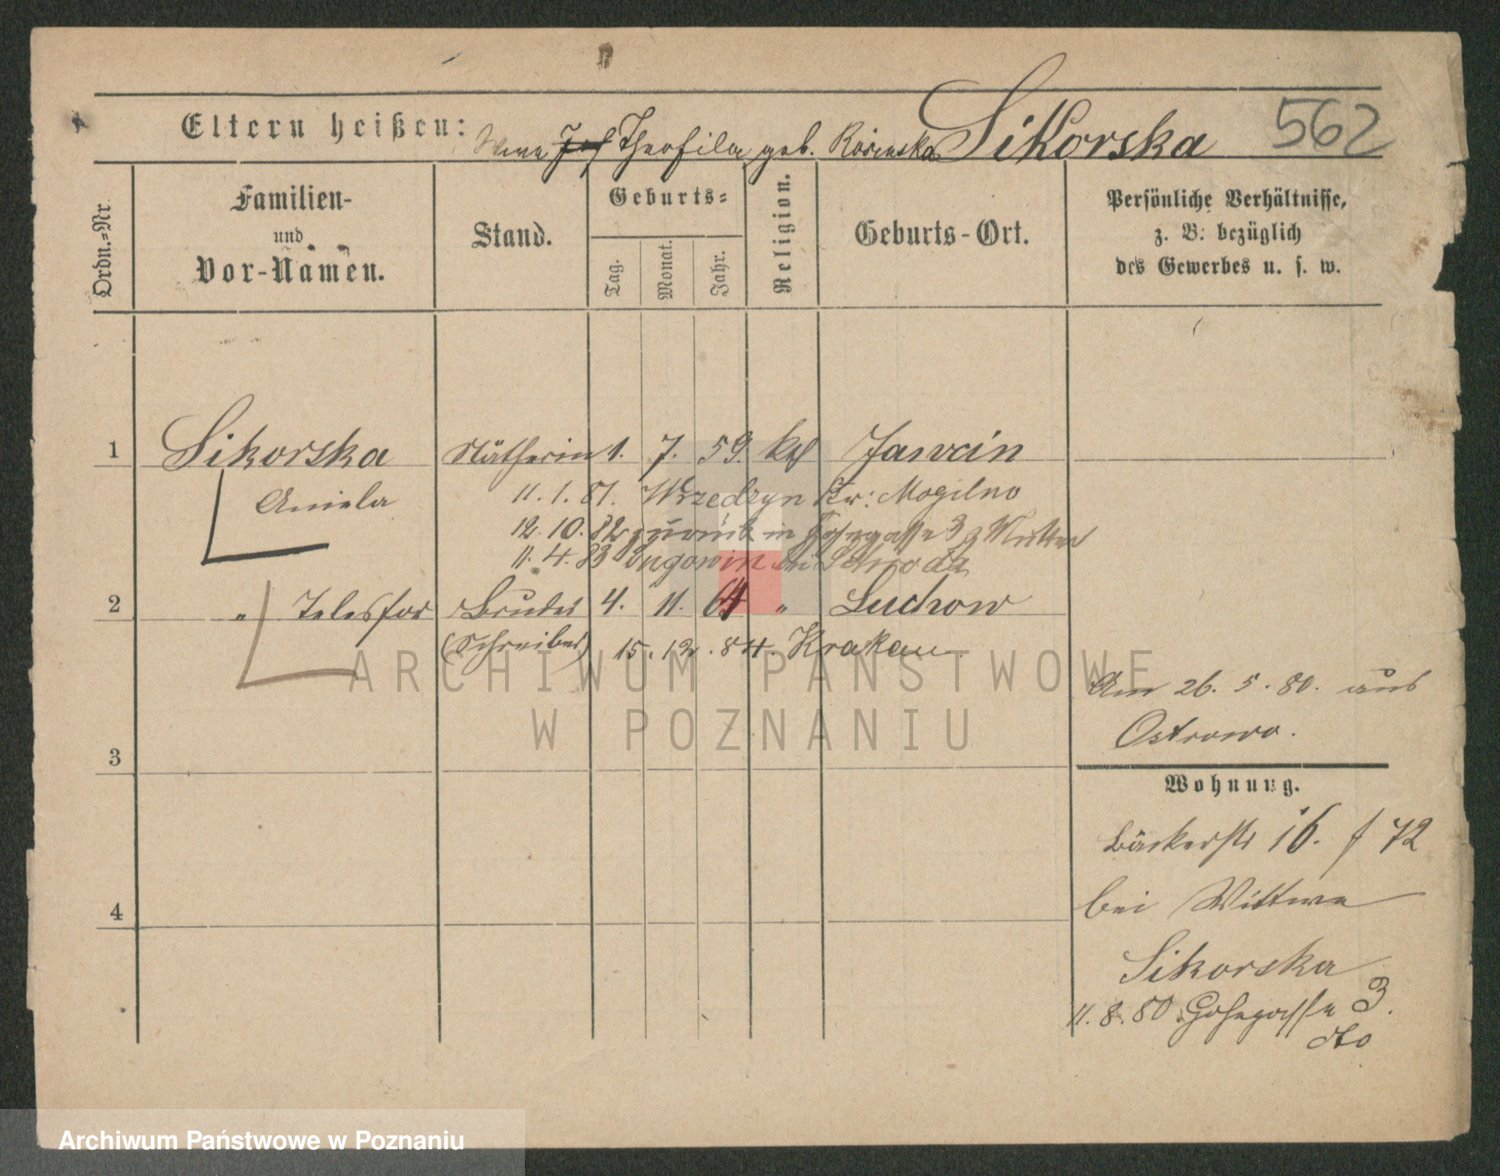 562
Eltern heißen: Theofila geb. Sikorska
Ordn.-Nr.
Familien-
und
Vor-Namen.
Stand.
Geburts-
Tag.
Monat.
Jahr.
Religion.
Geburts-Ort.
Persönliche Verhältnisse,
z. B: bezüglich
des Gewerbes u. s. w.
1 Sikorska Nätherin 1. 7. 59. kth Jarocin
Aniela 11. 1. 81. Wszedzyn Kr: Mogilno
12. 10. 82 zurück in 3
11. 4. 83 bei Schroda
2 " Telesfor Bruder 4. 11. 64 " Luchow
(Schreiber) 15. 12. 84. Krakau
Am 26. 5. 80. aus
Ostrowo.
3
Wohnung.
Bäckerstr 16. f 72
bei Wittwe
4
Sikorska
11. 8. 80 3.
dto
ARCHIWUM PAŃSTWOWE
W POZNANIU
Archiwum Państwowe w Poznaniu